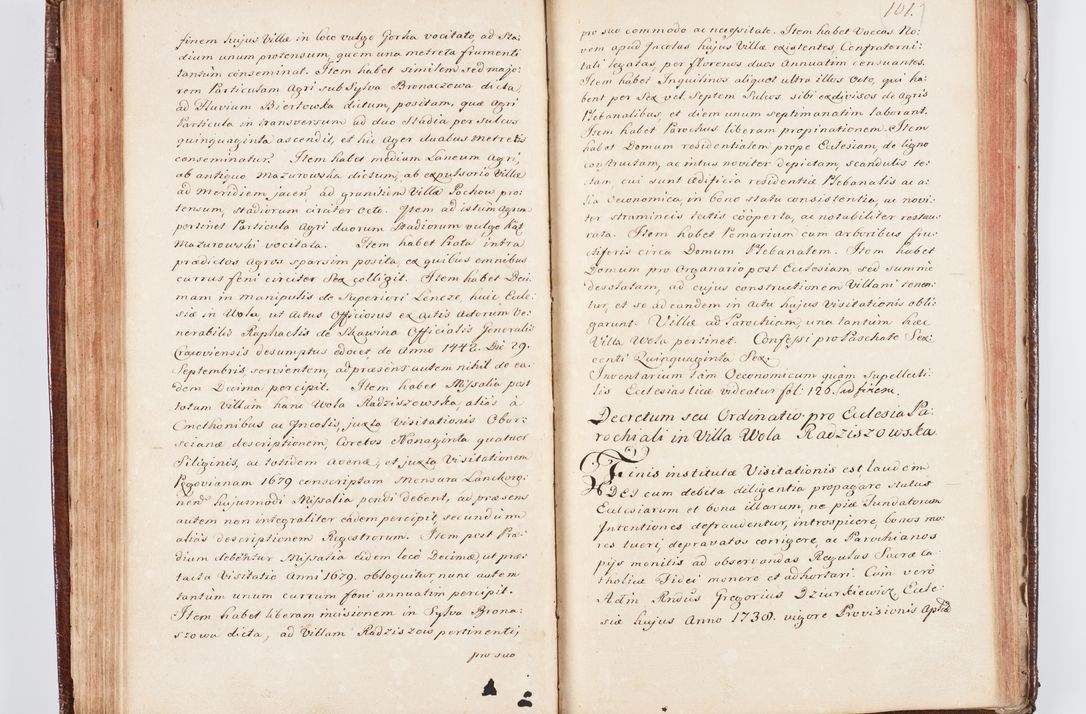 finem hujus Villæ in loco vulgo Gorka vocitato, ad Sta-
dium unum protensum, quem una metreta frumenti
tantum conseminat. Item habet similem sed majo-
rem Particulam Agri sub Sylva Bronaczowa dicta,
ad Fluvium Biertowka dictum, positam, quæ Agri
Particula in transversum ad duo Stadia per sulcos
quinquaginta ascendit, et hic Ager duabus metretis
conseminatur. Item habet medium Laneum Agri,
ab antiquo Mazurowska dictum, ab expulsorio Villæ
ad Meridiem jacen: ad granitiem Villæ Pochow pro-
tensum, stadiorum circiter Octo. Item ad istum Agrum
pertinet Particula Agri duorum Stadiorum vulgo Kąt
Mazurowski vocitata. Item habet Prata intra
prædictos Agros sparsim posita, ex quibus omnibus
currus feni circiter Sex colligit. Item habet Deci-
mam in manipulis de Superiori Lencze, huic Eccle-
siæ in Wola, ut Actus Officiosus ex actis Actorum Ve-
nerabilis Raphaelis de Skawina Officialis Generalis
Cracoviensis desumptus edocet, de Anno 1442. Die 29.
Septembris, servientem, ad præsens autem nihil de ea-
dem Decima percipit. Item habet Missalia post
totam Villam hanc Wola Radziszowska, alias à
Cmethonibus ac Incolis, juxta Visitationis Obor-
scianæ descriptionem, Coretos Nonaginta quatuor
Siliginis, ac totidem avenæ, et juxta Visitationem
1679 conscriptam Mensura Lanckoro-
nen: hujusmodi Missalia pendi debent, ad præsens
autem non integraliter eadem percipit, secundum
alias descriptionem Regestrorum. Item post Præ-
dium debentur Missalia eidem loco Decimæ, ut præ-
tacta Visitatio Anni 1679. obloquitur nunc autem
tantum unum currum feni annuatim percipit.
Item habet liberam incisionem in Sylva Brona-
szowa dicta, ad Villam Radziszow pertinenti,
pro suo
101.
pro suo commodo ac necessitate. Item habet Vaccas No-
vem apud Incolas hujus Villæ existentes, Confraterni-
tati legatas, per florenos duos Annuatim censuantes.
Item habet Inquilinos aliquot ultra illos Octo, qui ha-
bent per Sex vel Septem Sulcos sibi exdivisos de Agris
Plebanalibus, et diem unum septimanatim laborant.
Item habet Parochus liberam propinationem. Item
habet Domum residentialem prope Ecclesiam, de ligno
constructam, ac intus noviter depictam, scandulis te-
ctam, cui sunt ædificia residentiæ Plebanalis ac a-
lia Oeconomica, in bono statu consistentia, ac novi-
ter stramineis tectis coöperta, ac notabiliter restau-
rata. Item habet Pomarium cum arboribus fru-
ctiferis circa Domum Plebanalem. Item habet
Domum pro Organario post Ecclesiam, sed summe
desolatam, ad cujus constructionem Villani tenen-
tur, et se ad eandem in Actu hujus Visitationis obli-
garunt. Villæ ad Parochiam, una tantùm hæc
Villa Wola pertinet. Confessi pro Paschate Sex-
centi Quinquaginta Sex.
Inventarium tàm Oeconomicum quàm Supellecti-
lis Ecclesiasticæ videatur fol: 126. ad finem.
Decretum seu Ordinatio pro Ecclesia Pa-
rochiali in Villa Wola Radziszowska.
Finis institutæ Visitationis est laudem
DEI cum debita diligentia propagare status
Ecclesiarum et bona illarum, ne piæ Fundatorum
Intentiones defraudentur, introspicere, bonos mo-
res tueri, depravatos corrigere, ac Parochianos
pijs monitis ad observandas Regulas Sacræ Ca-
tholicæ Fidei monere et adhortari. Cùm verò
Adm: Rndus Gregorius Dziurkiewicz Eccle-
siæ hujus Anno 1738. vigore Provisionis Aplicæ